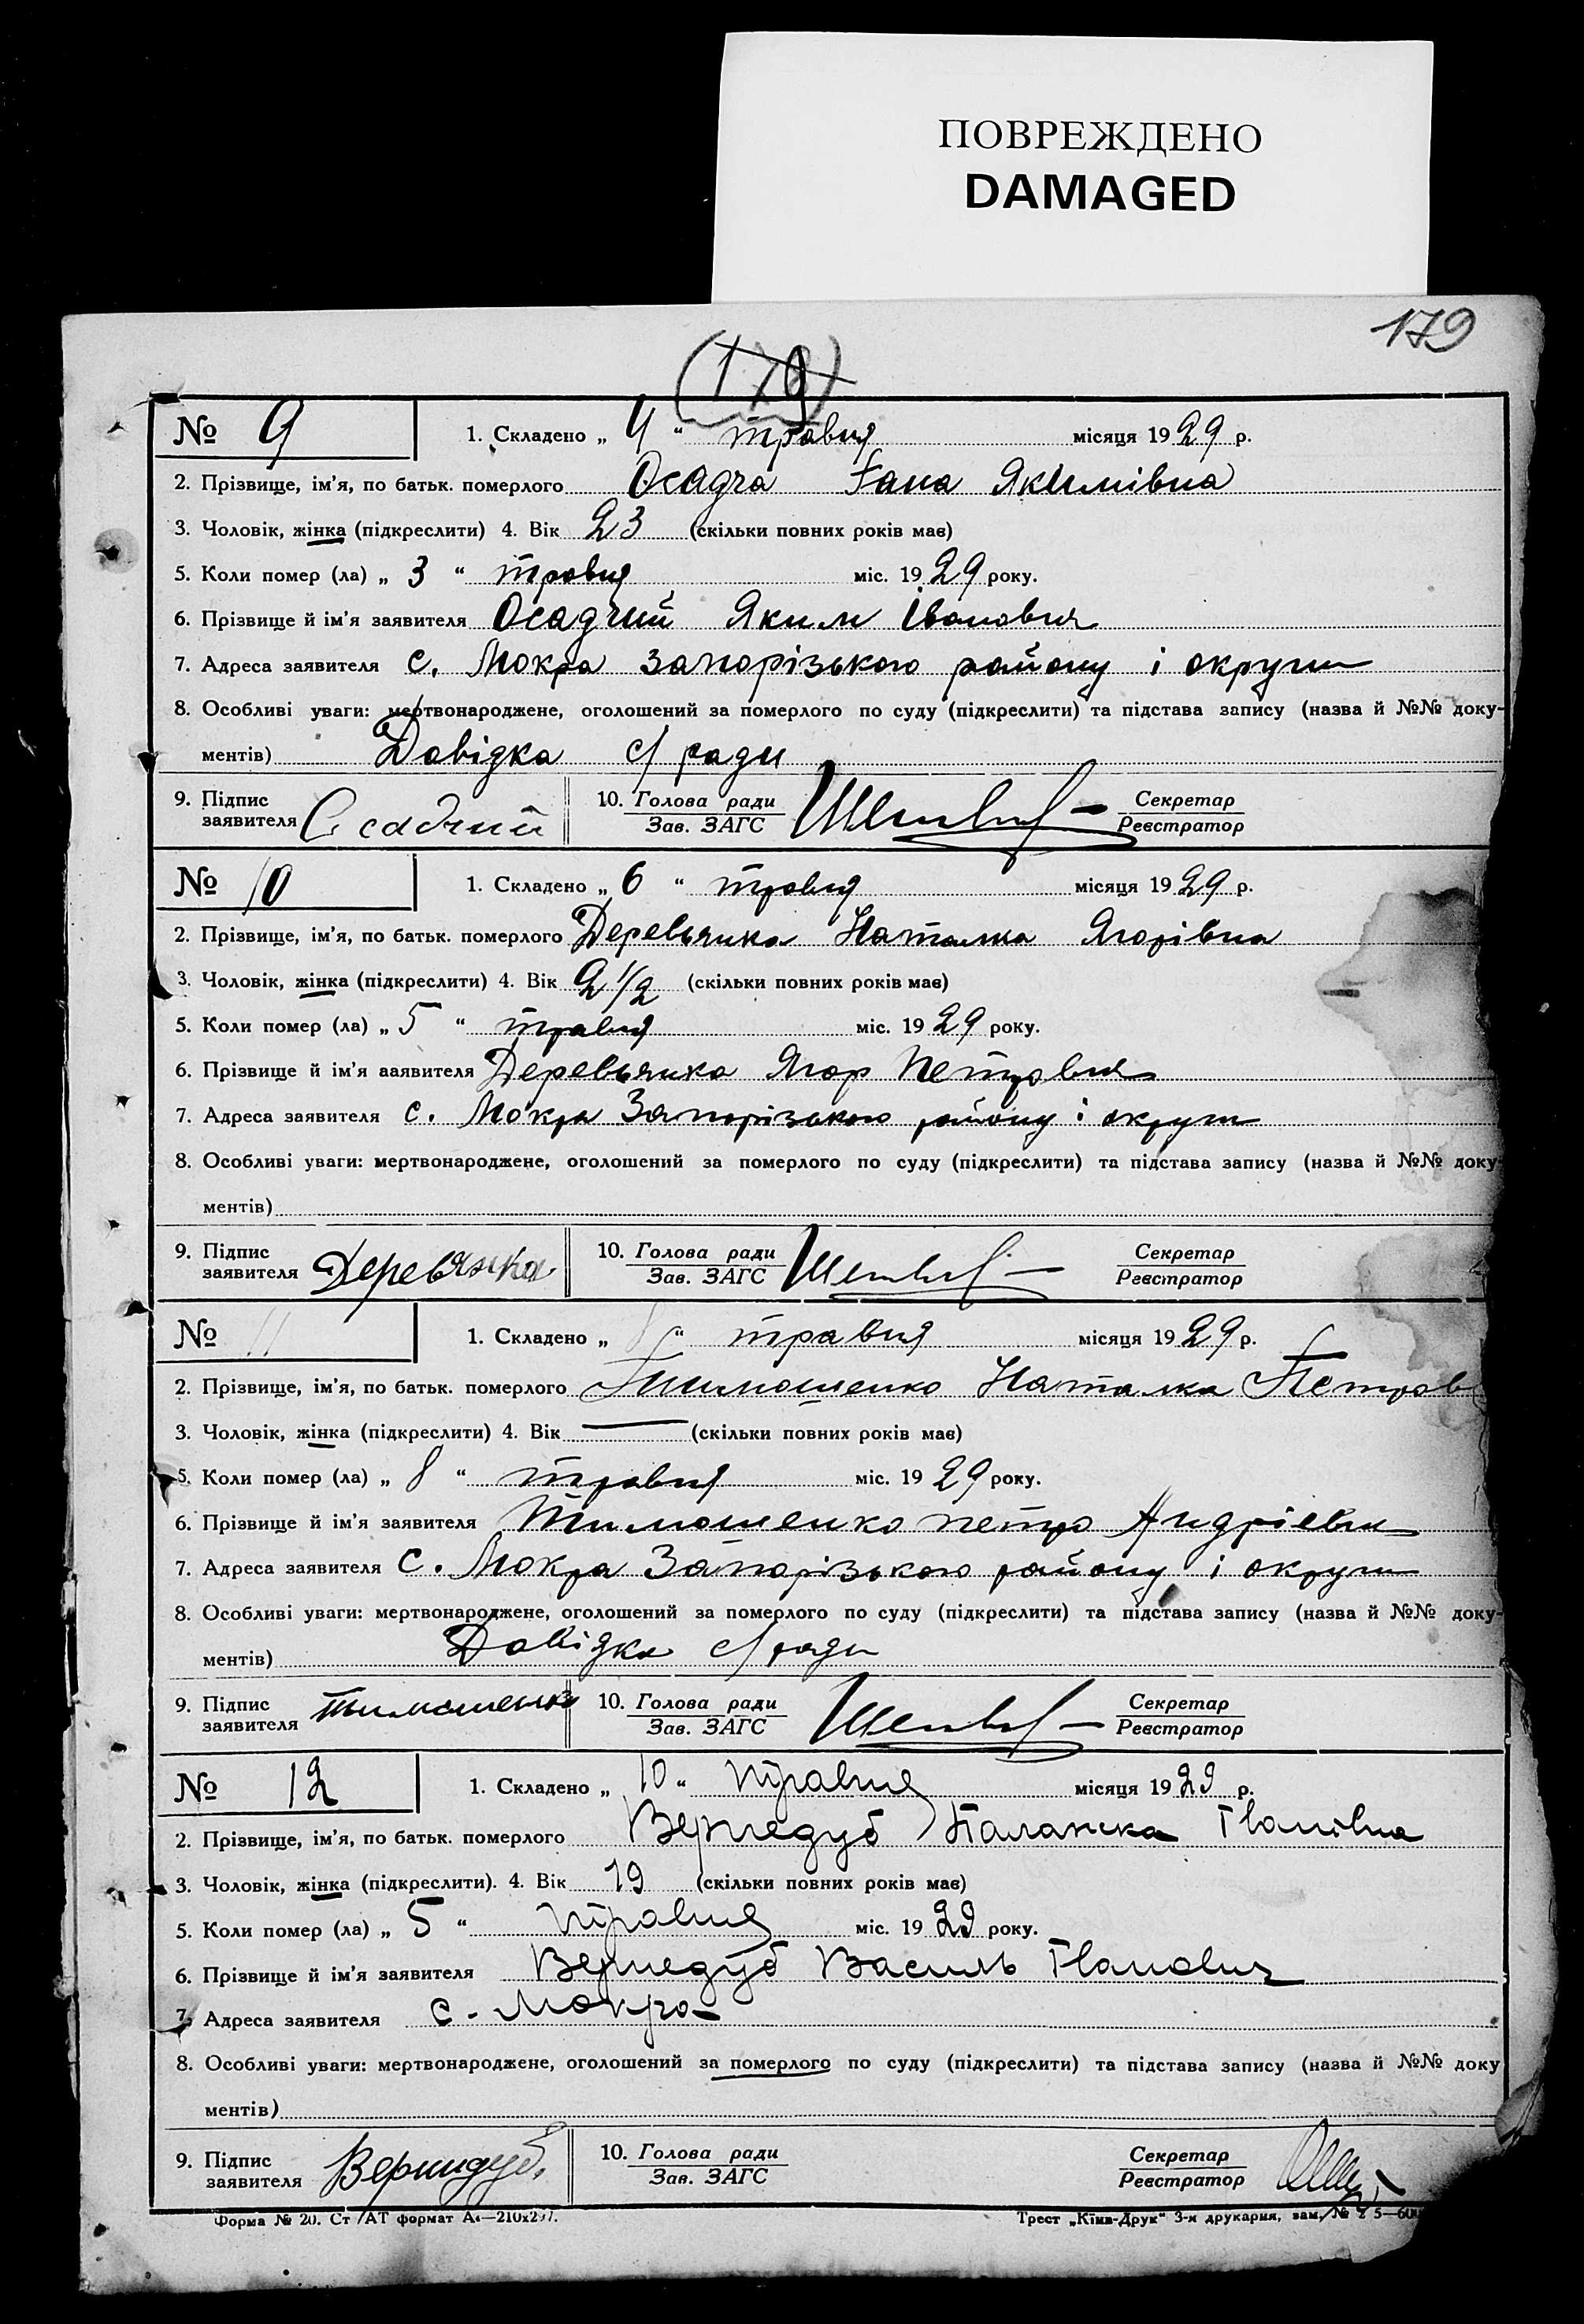 ПОВРЕЖДЕНО
DAMAGED
179
№ 9 1. Складено „ 4 “ травня місяця 1929 р.
2. Прізвище, ім’я, по батьк. померлого Осадча Гана Якимівна
3. Чоловік, жінка (підкреслити) 4. Вік 23 (скільки повних років має)
5. Коли помер (ла) „ 3 “ травня міс. 1929 року.
6. Прізвище й ім’я заявителя Осадчий Яким Іванович
7. Адреса заявителя с. Мокра Запорізького району і округи
8. Особливі уваги: мертвонароджене, оголошений за померлого по суду (підкреслити) та підстава запису (назва й №№ доку-
ментів) Довідка с/ ради
9. Підпис заявителя Осадчий 10. Голова ради Зав. ЗАГС Секретар Реєстратор
№ 10 1. Складено „ 6 “ травня місяця 1929 р.
2. Прізвище, ім’я, по батьк. померлого Деревьянка Наталка Ягорівна
3. Чоловік, жінка (підкреслити) 4. Вік 2 1/2 (скільки повних років має)
5. Коли помер (ла) „ 5 “ травня міс. 1929 року.
6. Прізвище й ім’я заявителя Деревьянка Ягор Петрович
7. Адреса заявителя с. Мокра Запорізького району і округи
8. Особливі уваги: мертвонароджене, оголошений за померлого по суду (підкреслити) та підстава запису (назва й №№ доку-
ментів)
9. Підпис заявителя Деревянка 10. Голова ради Зав. ЗАГС Секретар Реєстратор
№ 11 1. Складено „ 8 “ травня місяця 1929 р.
2. Прізвище, ім’я, по батьк. померлого Тимошенко Наталка Петрів
3. Чоловік, жінка (підкреслити) 4. Вік — (скільки повних років має)
5. Коли помер (ла) „ 8 “ травня міс. 1929 року.
6. Прізвище й ім’я заявителя Тимошенко Петро Андрієвич
7. Адреса заявителя с. Мокра Запорізького району і округи
8. Особливі уваги: мертвонароджене, оголошений за померлого по суду (підкреслити) та підстава запису (назва й №№ доку-
ментів) Довідка с/ ради
9. Підпис заявителя Тимошенко 10. Голова ради Зав. ЗАГС Секретар Реєстратор
№ 12 1. Складено „ 10 “ травня місяця 1929 р.
2. Прізвище, ім’я, по батьк. померлого Вернедуб Палажка Іванівна
3. Чоловік, жінка (підкреслити). 4. Вік 19 (скільки повних років має)
5. Коли помер (ла) „ 5 “ травня міс. 1929 року.
6. Прізвище й ім’я заявителя Вернедуб Василь Іванович
7. Адреса заявителя с. Мокра
8. Особливі уваги: мертвонароджене, оголошений за померлого по суду (підкреслити) та підстава запису (назва й №№ доку
ментів)
9. Підпис заявителя Вернидуб. 10. Голова ради Зав. ЗАГС Секретар Реєстратор
Форма № 20. Ст АТ формат А4—210х297. Трест „Київ-Друк“ 3-я друкарня, зам. №